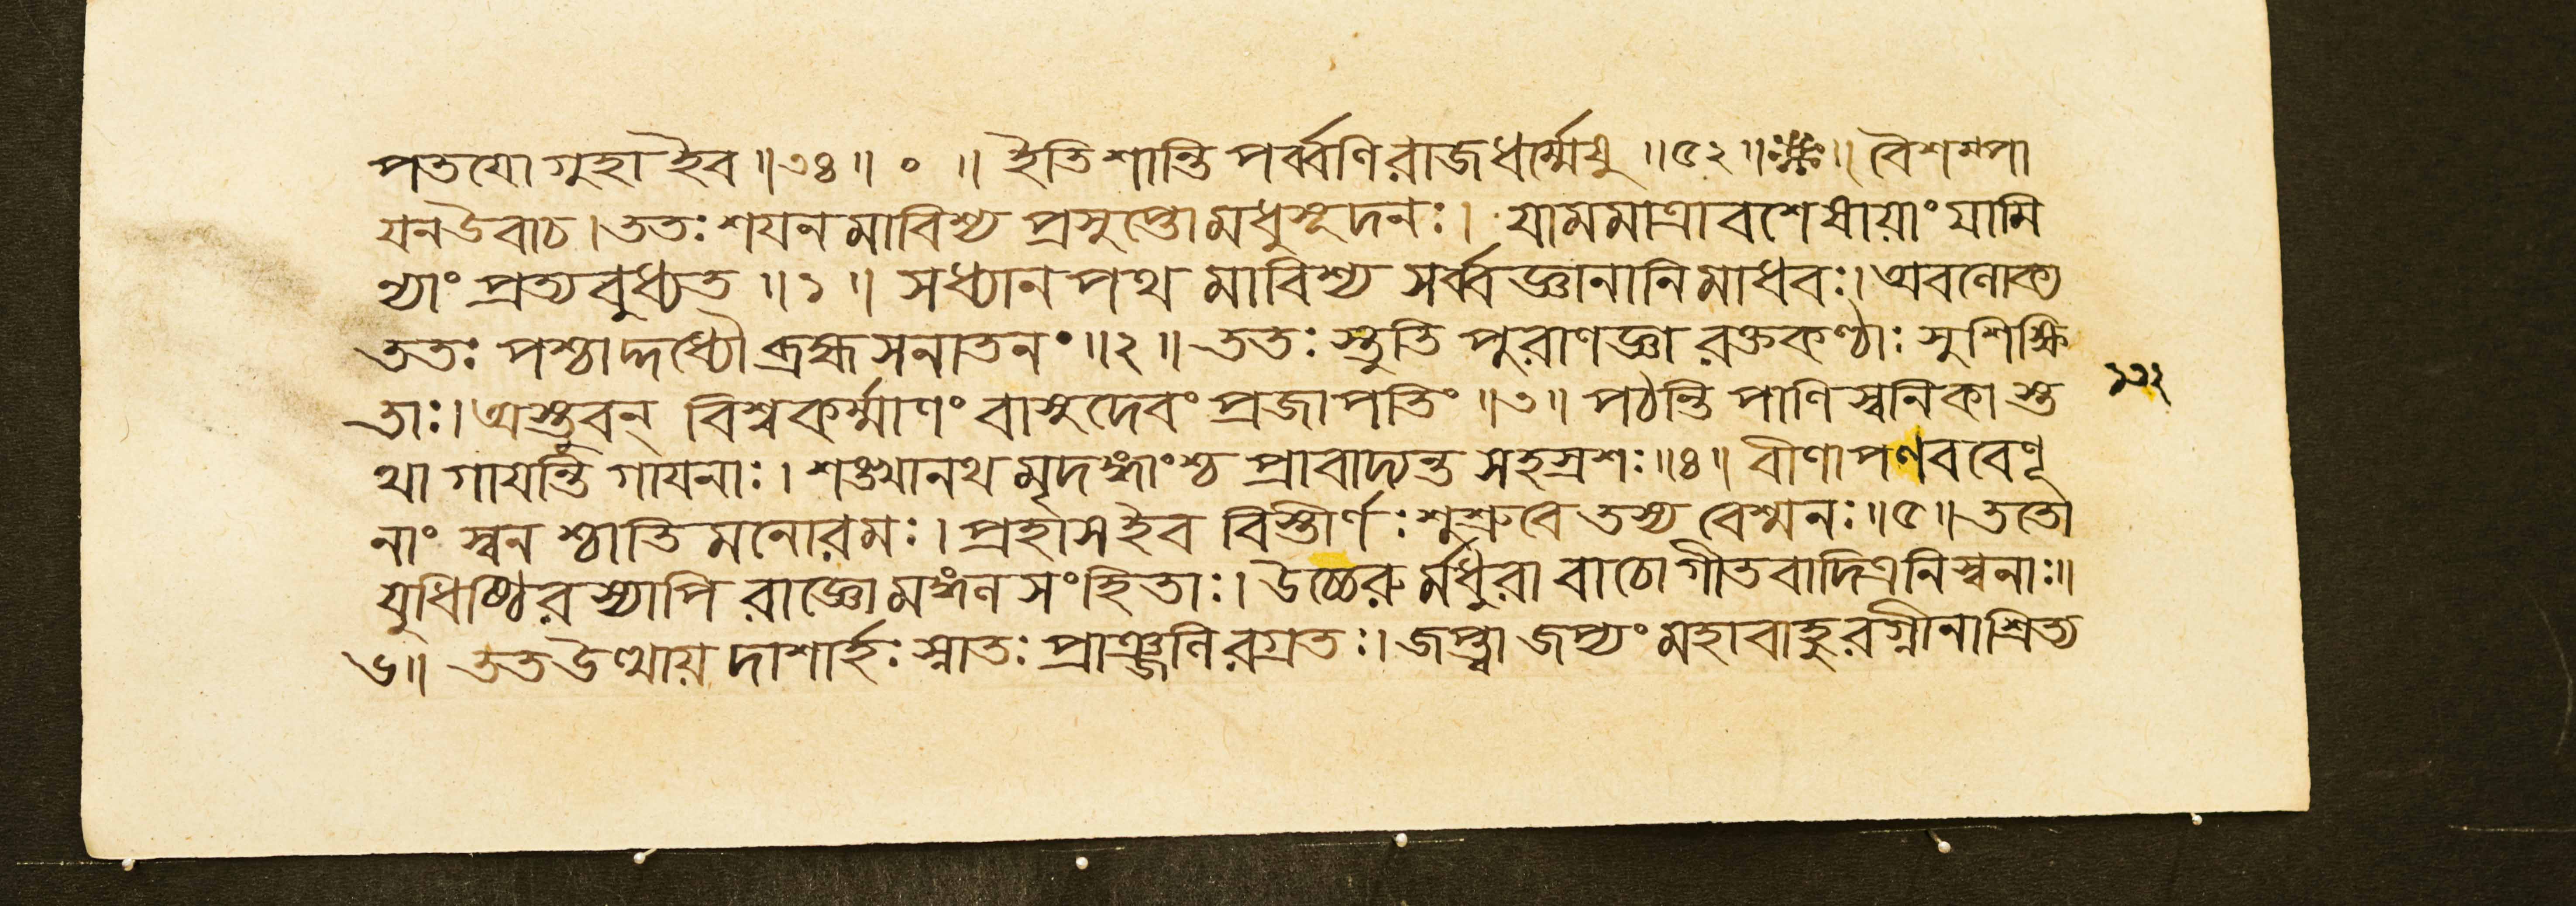 পতযো গুহা ইব ॥৩৪॥ ० ॥ ইতি শান্তি পর্ব্বণি রাজধর্ম্মেষু ॥৫২॥ ॥ বৈশম্পা
যনউবাচ । ততঃ শযনমাবিশ্য প্রসুপ্তো মধুসূদনঃ । যামমাত্রাবশেষায়াং যামি
ন্যাং প্রত্যবুধ্যত ॥১॥ সধ্যানপথমাবিশ্য সর্ব্বজ্ঞানানি মাধবঃ । অবলোক্য
ততঃ পশ্চাদ্দধ্যৌ ব্রহ্ম সনাতনং ॥২॥ ততঃ স্তুতি পুরাণজ্ঞা রক্তকণ্ঠাঃ সুশিক্ষি
তাঃ । অস্তুবন্ বিশ্বকর্ম্মাণং বাসুদেবং প্রজাপতিং ॥৩॥ পঠন্তি পাণিস্বনিকাস্ত
থা গাযন্তি গাযনাঃ । শঙ্খানথ মৃদঙ্গাংশ্চ প্রাবাদ্যন্ত সহস্রশঃ ॥৪॥ বীণাপণববেণূ
নাং স্বনশ্চাতিমনোরমঃ । প্রহাস ইব বিস্তীর্ণঃ শুশ্রুবে তস্য বেশ্মনঃ ॥৫॥ ততো
যুধিষ্ঠিরস্যাপি রাজ্ঞো মঙ্গলসংহিতাঃ । উচ্চেরুর্মধুরা বাচো গীতবাদিত্রনিস্বনাঃ ॥
৬॥ তত উত্থায় দাশার্হঃ স্নাতঃ প্রাঞ্জলিরগ্রতঃ । জপ্ত্বা জপ্যং মহাবাহুরগ্নীনাশ্রিত্য
১৩২